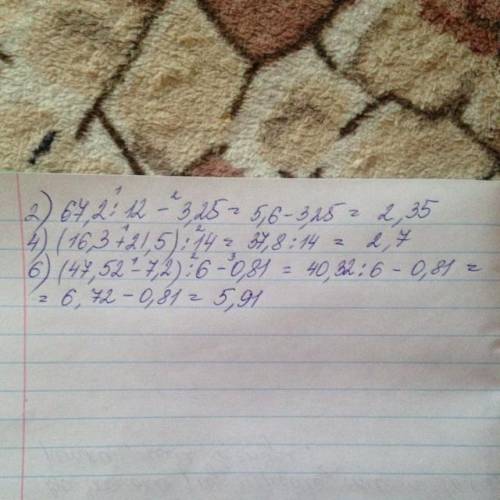 2) 67,2 : 12 - 3,25 = 5,6 - 3,25 = 2,35
4) (16,3 + 21,5) : 14 = 37,8 : 14 = 2,7
6) (47,52 - 7,2) : 6 - 0,81 = 40,32 : 6 - 0,81 =
= 6,72 - 0,81 = 5,91